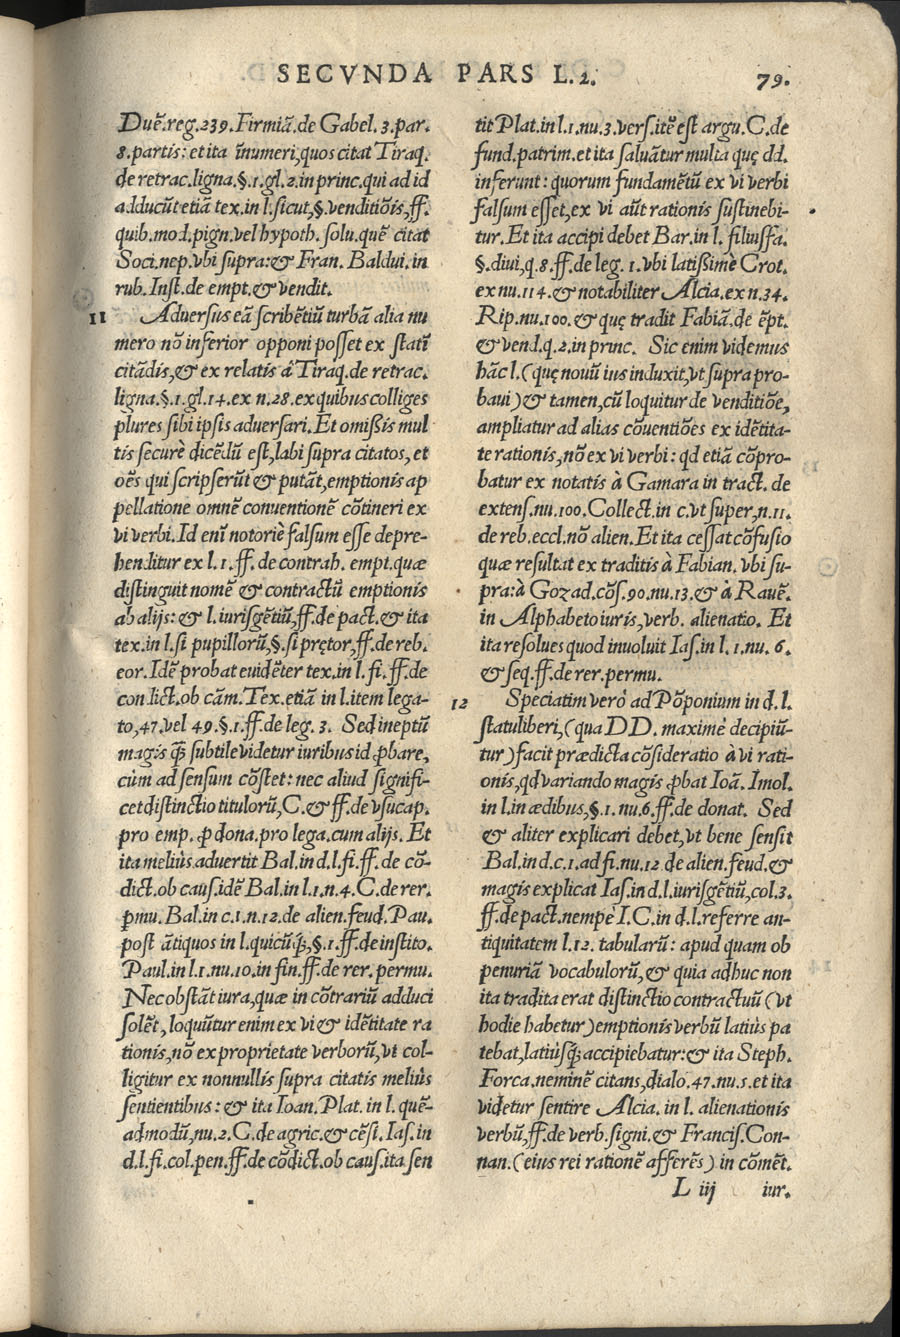 SECVNDA PARS L.2. 79.
Duẽ.reg.239.Firmiã.de Gabel.3.par.
8.partis: et ita ĩnumeri,quos citat Tiraq.
de retrac.ligna.§.1.gl.2.in princ.qui ad id
adducũt etiã tex.in l.sicut,§.venditiõis,ff.
quib.mod.pign.vel hypoth.solu.quẽ citat
Soci.nep.vbi supra:& Fran. Baldui.in
rub.Inst.de empt.& vendit.
11 Aduersus eã scribẽtiũ turbã alia nu
mero nõ inferior opponi posset ex statĩ
citãdis,& ex relatis á Tiraq.de retrac.
ligna.§.1.gl.14.ex n.28.ex quibus colliges
plures sibi ipsis aduersari. Et omißis mul
tis securè dicẽdũ est,labi supra citatos, et
oẽs qui scripserũt & putãt,emptionis ap
pellatione omnẽ conuentionẽ cõtineri ex
vi verbi. Id enĩ notoriè falsum esse depre-
henditur ex l.1.ff.de contrah. empt.quæ
distinguit nomẽ & contractũ emptionis
ab alijs: & l.iurisgẽtiũ,ff.de pact.& ita
tex.in l.si pupillorũ,§.si prętor,ff.de reb.
eor. Idẽ probat euidẽter tex.in l.fi.ff.de
condict.ob cãm. Tex.etiã in l.item lega-
to,47.vel 49.§.1.ff.de leg. 3. Sed ineptũ
magis q̃ꝫ subtile videtur iuribus id ꝓbare,
cùm ad sensum cõstet: nec aliud signifi-
cet distinctio titulorũ,C.& ff.de vsucap.
pro emp. ꝓ dona.pro lega.cum alijs. Et
ita meliùs aduertit Bal.in d.l.fi.ff. de cõ-
dict.ob caus.idẽ Bal.in l.1.n.4.C.de rer.
ꝑmu. Bal.in c.1.n.12.de alien.feud. Pau.
post ãtiquos in l.quicũq̃ꝫ,§.1.ff.de instito.
Paul.in l.1.nu.10.in fin.ff.de rer. permu.
Nec obstãt iura,quæ in cõtrariũ adduci
solẽt, loquũtur enim ex vi & idẽtitate ra
tionis,nõ ex proprietate verborũ,vt col-
ligitur ex nonnullis supra citatis meliùs
sentientibus: & ita Ioan. Plat. in l. quẽ-
admodũ,nu.2.C.de agric.& cẽsi. Ias.in
d.l.fi.col.pen.ff.de cõdict.ob caus.ita sen
tit Plat.in l.1.nu.3.vers.itẽ est argu. C.de
fund.patrim.et ita saluãtur multa quę dd.
inferunt: quorum fundamẽtũ ex vi verbi
falsum esset,ex vi aũt rationis sustinebi-
tur. Et ita accipi debet Bar.in l. filiusfa.
§.diui,q.8.ff.de leg. 1.vbi latißimè Crot.
ex nu.114.& notabiliter Alcia.ex n.34.
Rip.nu.100.& quę tradit Fabiã.de ẽpt.
& vend.q.2.in princ. Sic enim videmus
hãc l.(quę nouũ ius induxit,vt supra pro-
baui) & tamen,cũ loquitur de venditiõe,
ampliatur ad alias cõuentiões ex idẽtita-
te rationis,nõ ex vi verbi: qđ etiã cõpro-
batur ex notatis à Gamara in tract. de
extens.nu.100.Collect.in c.vt super,n.11.
de reb.eccl.nõ alien. Et ita cessat cõfusio
quæ resultat ex traditis à Fabian. vbi su-
pra:à Gozad.cõs.90.nu.13.& à Rauẽ.
in Alphabeto iuris,verb. alienatio. Et
ita resolues quod inuoluit Ias.in l. 1.nu. 6.
& seq.ff.de rer.permu.
12 Speciatim verò ad Põponium in d.l.
statuliberi,(qua DD. maximè decipiũ-
tur) facit prædicta cõsideratio à vi rati-
onis,qđ variando magis ꝓbat Ioã. Imol.
in l.in ædibus,§.1.nu.6.ff.de donat. Sed
& aliter explicari debet,vt bene sensit
Bal.in d.c.1.ad fi.nu.12 de alien.feud.&
magis explicat Ias.in d.l.iurisgẽtiũ,col.3.
ff.de pact.nempè I.C.in d.l.referre an-
tiquitatem l.12. tabularũ: apud quam ob
penuriã vocabulorũ,& quia adhuc non
ita tradita erat distinctio contractuũ (vt
hodie habetur) emptionis verbũ latiùs pa
tebat,latiùsq̃ꝫ accipiebatur:& ita Steph.
Forca.neminẽ citans,dialo.47.nu.5.et ita
videtur sentire Alcia. in l. alienationis
verbũ,ff.de verb.signi.& Francis. Con-
nan.(eius rei rationẽ afferẽs) in cõmẽt.
L iij iur.